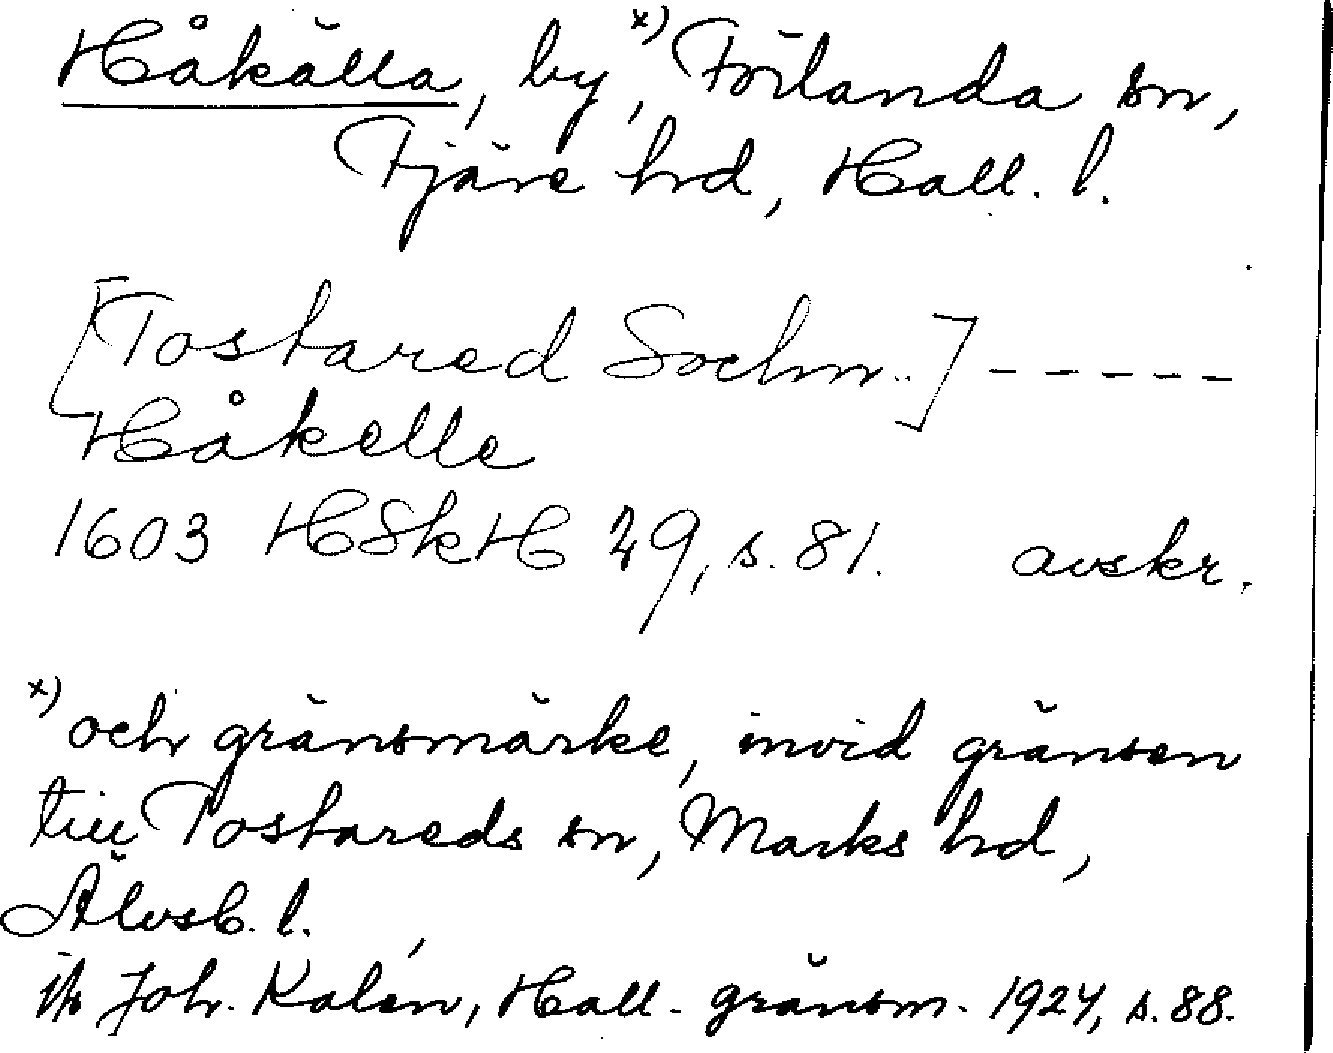 Håkälla, by,ˣ⁾ Förlanda sn,
Fjäre hd, Hall. l.
[Tostared Sochn..] - - - - -
Håkelle
1603 HSkH 29, s. 81. avskr.
ˣ⁾ och gränsmärke, invid gränsen
till Tostareds sn, Marks hd,
Älvsb. l.
jfr Joh. Kalén, Hall. gränsm. 1924, s. 88.